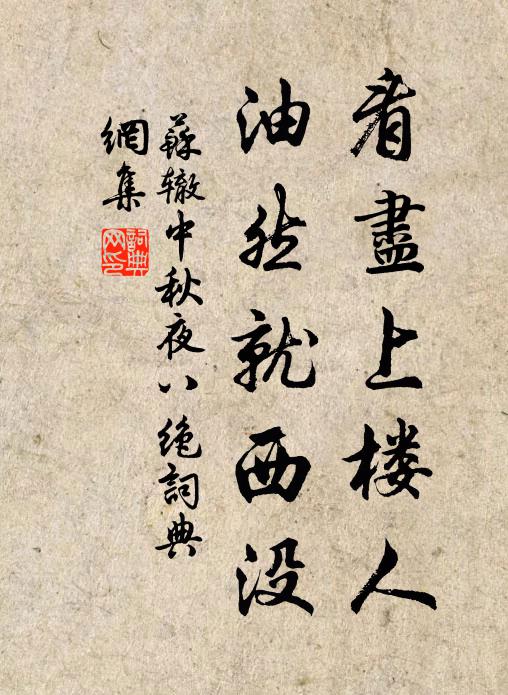 看盡上楼人
油然就西没
蘇辙中秋夜八绝詞典
網集
詞典
网印